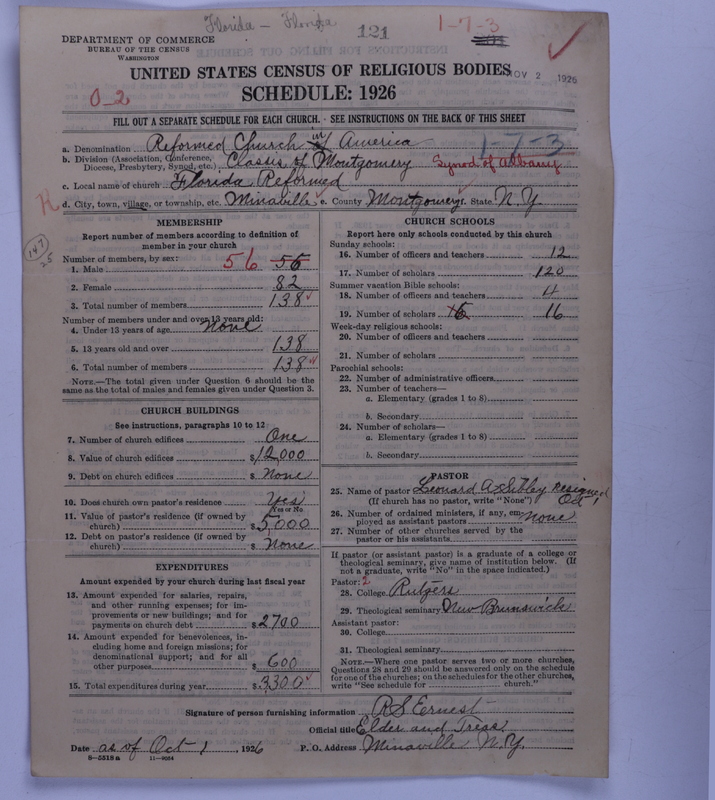 Florida - Florida
121
1-7-3
DEPARTMENT OF COMMERCE
BUREAU OF THE CENSUS
WASHINGTON
UNITED STATES CENSUS OF RELIGIOUS BODIES
NOV 2 1926
SCHEDULE: 1926
O-2
FILL OUT A SEPARATE SCHEDULE FOR EACH CHURCH. - SEE INSTRUCTIONS ON THE BACK OF THIS SHEET
1-7-3
a. Denomination Reformed Church in America
b. Division (Association, Conference, Diocese, Presbytery, Synod, etc.) Classis of Montgomery Synod of Albany
c. Local name of church Florida Reformed
R
d. City, town, village, or township, etc. Minaville e. County Montgomery State N.Y.
147
25
MEMBERSHIP
Report number of members according to definition of
member in your church
Number of members, by sex:
1. Male 56 56
2. Female 82
3. Total number of members 138
Number of members under and over 13 years old:
4. Under 13 years of age None
5. 13 years old and over 138
6. Total number of members 138
NOTE.—The total given under Question 6 should be
same as the total of males and females given under Question 3.
CHURCH BUILDINGS
See instructions, paragraphs 10 to 12
7. Number of church edifices One
8. Value of church edifices $12,000
9. Debt on church edifices $ None
10. Does church own pastor's residence Yes
Yes or No
11. Value of pastor's residence (if owned by
church) $5,000
12. Debt on pastor's residence (if owned by
church) $ None
EXPENDITURES
Amount expended by your church during last fiscal year
13. Amount expended for salaries, repairs,
and other running expenses; for im-
provements or new buildings; and for
payments on church debt $2700
14. Amount expended for benevolences, in-
cluding home and foreign missions; for
denominational support; and for all
other purposes $ 600
15. Total expenditures during year $3300
CHURCH SCHOOLS
Report here only schools conducted by this church
Sunday schools:
16. Number of officers and teachers 12
17. Number of scholars 120
Summer vacation Bible schools:
18. Number of officers and teachers 4
19. Number of scholars 16
Week-day religious schools:
20. Number of officers and teachers
21. Number of scholars
Parochial schools:
22. Number of administrative officers
23. Number of teachers—
a. Elementary (grades 1 to 8)
b. Secondary
24. Number of scholars—
a. Elementary (grades 1 to 8)
b. Secondary
PASTOR
25. Name of pastor Leonard A. Sibley Resigned
(If church has no pastor, write "None") Oct 1
26. Number of ordained ministers, if any, em-
ployed as assistant pastors None
27. Number of other churches served by the
pastor or his assistants
If pastor (or assistant pastor) is a graduate of a college or
theological seminary, give name of institution below. (If
not a graduate, write "No" in the space indicated.)
Pastor: 2
28. College Rutgers
29. Theological seminary New Brunswick
Assistant pastor:
30. College
31. Theological seminary
NOTE.—Where one pastor serves two or more churches,
Questions 28 and 29 should be answered only on the schedule
for one of the churches; on the schedules for the other churches,
write "See schedule for church."
Signature of person furnishing information R S Ernest
Official title Elder and Treas
Date as of Oct 1, 1926 P. O. Address Minaville N.Y.
8-5518a 11-9034